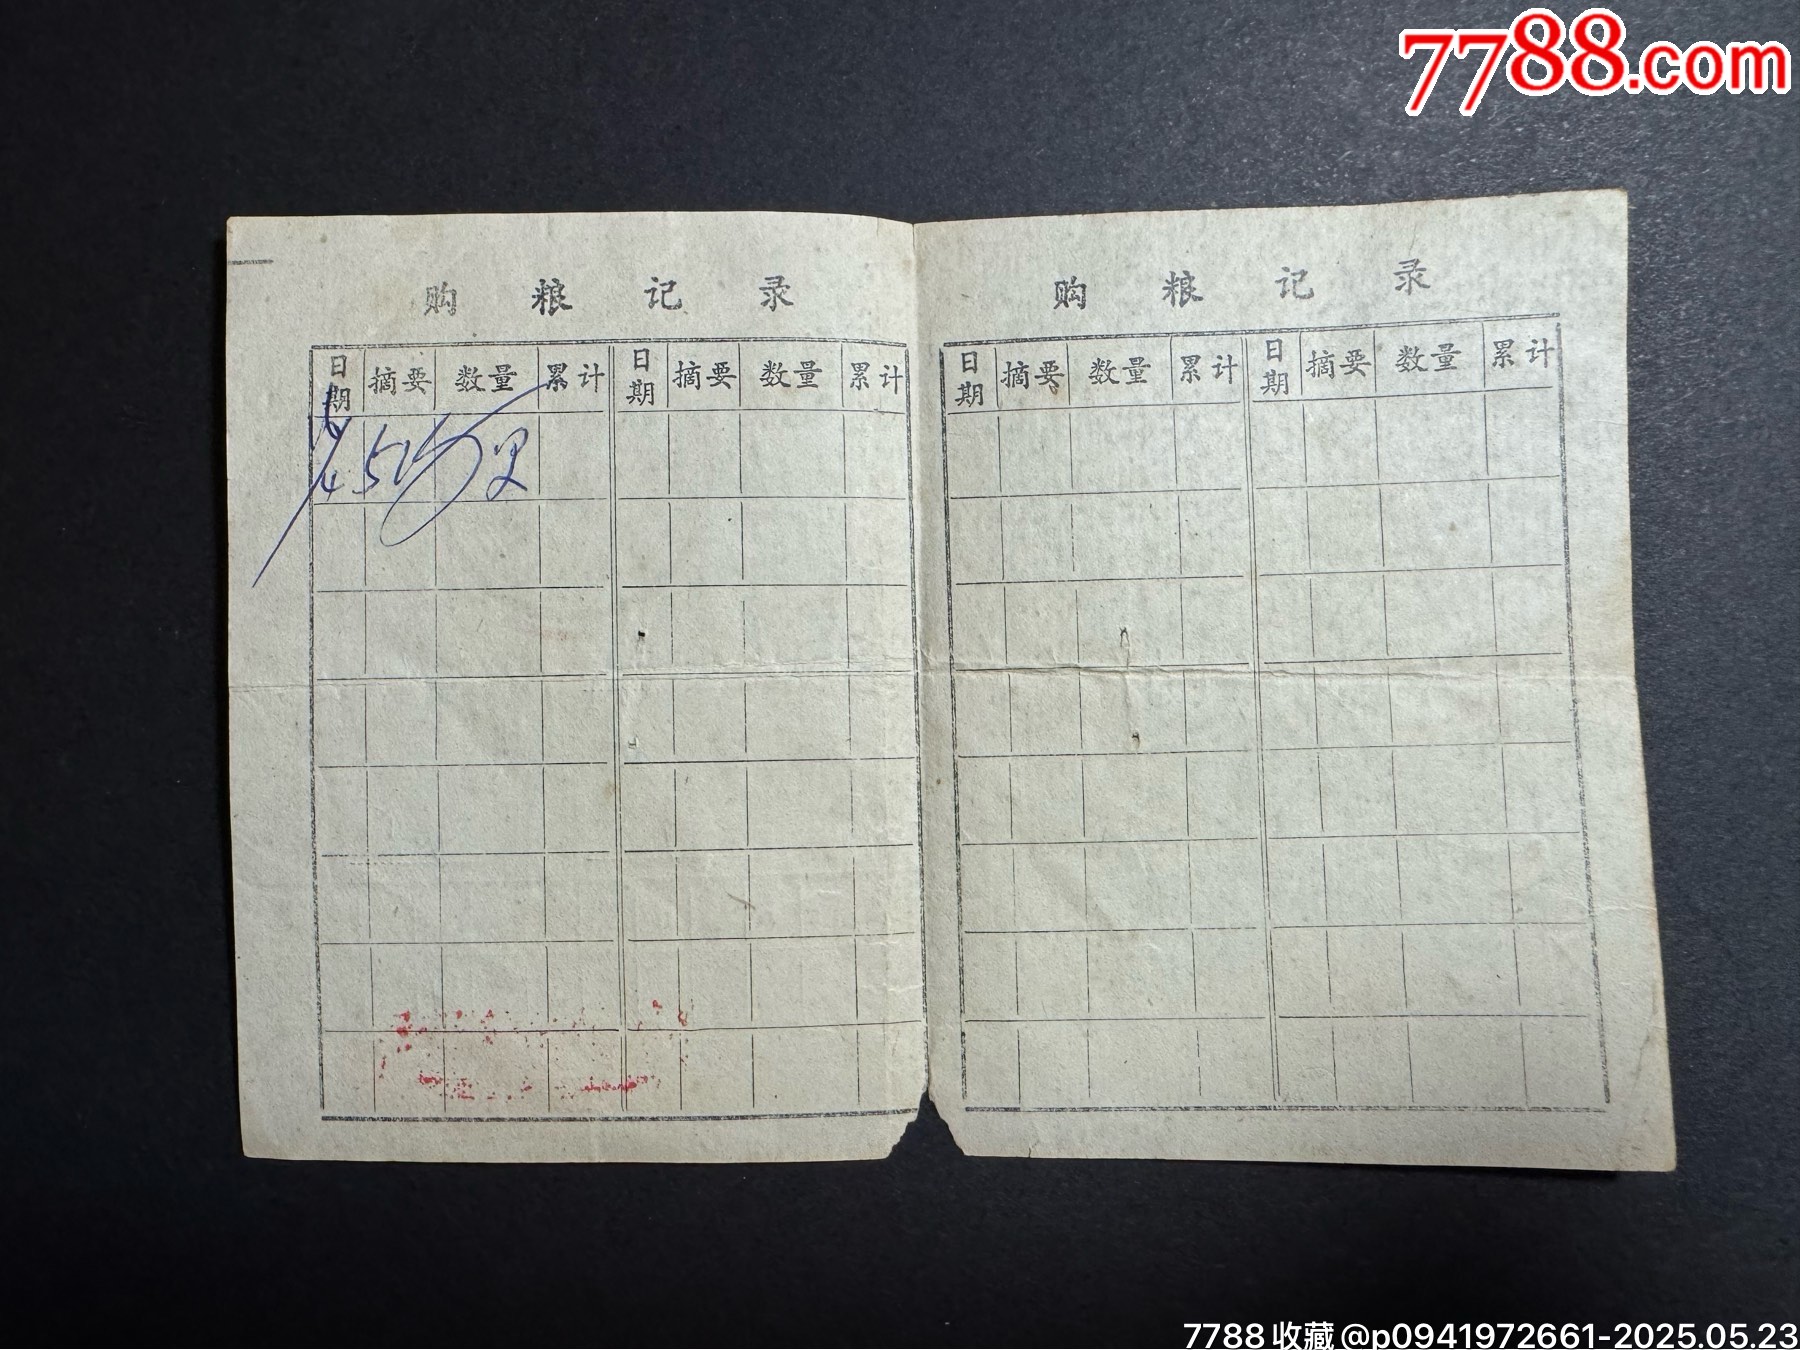 7788.com
购粮记录
购粮记录
日期 摘要 数量 累计 日期 摘要 数量 累计
日期 摘要 数量 累计 日期 摘要 数量 累计
7788收藏@p0941972661-2025.05.23